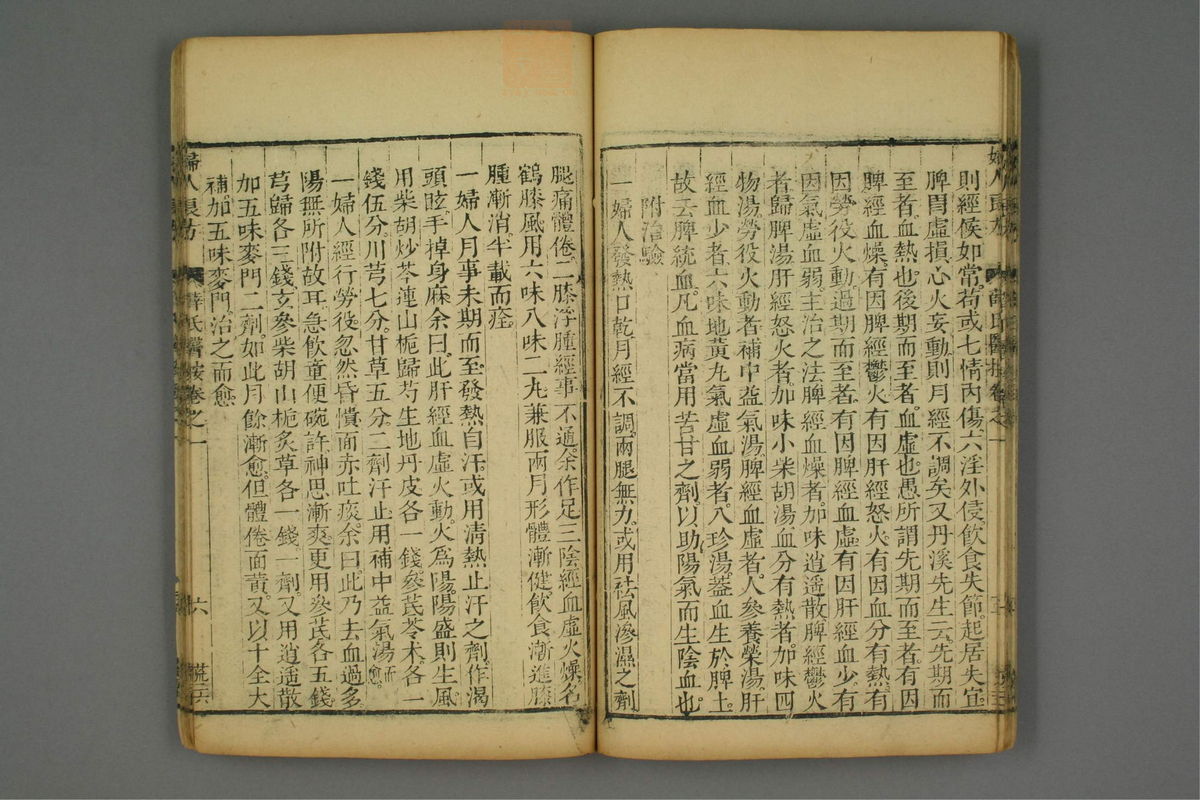 則經候如常苟或七情內傷六淫外侵飲食失節起居失宜
脾胃虛損心火妄動則月經不調矣又丹溪先生云先期而
至者血熱也後期而至者血虛也愚所謂先期而至者有因
脾經血燥有因脾經鬱火有因肝經怒火有因血分有熱有
因勞役火動過期而至者有因脾經血虛有因肝經血少有
因氣虛血弱主治之法脾經血燥者加味逍遥散脾經鬱火
者歸脾湯肝經怒火者加味小柴胡湯血分有熱者加味四
物湯勞役火動者補中益氣湯脾經血虛者人參養榮湯肝
經血少者六味地黃丸氣虛血弱者八珍湯蓋血生於脾土
故云脾統血凡血病當用苦甘之劑以助陽氣而生陰血也
附治驗
一婦人發熱口乾月經不調兩腿無力或用祛風滲濕之劑
腿痛體倦二膝浮腫經事不通余作足三陰經血虛火燥名
鶴膝風用六味八味二丸兼服兩月形體漸健飲食漸進膝
腫漸消半載而痊
一婦人月事未期而至發熱自汗或用清熱止汗之劑作渴
頭眩手掉身麻余曰此肝經血虛火動火爲陽陽盛則生風
用柴胡炒芩連山梔歸芍生地丹皮各一錢參芪苓朮各一
錢伍分川芎七分甘草五分二劑汗止用補中益氣湯而愈
一婦人經行勞役忽然昏憒面赤吐痰余曰此乃去血過多
陽無所附故耳急飲童便碗許神思漸爽更用參芪各五錢
芎歸各三錢玄參柴胡山梔炙草各一錢一劑又用逍遥散
加五味麥門二劑如此月餘漸愈但體倦面黃又以十全大
補加五味麥門治之而愈
婦人良方 薛氏醫按卷之一 六